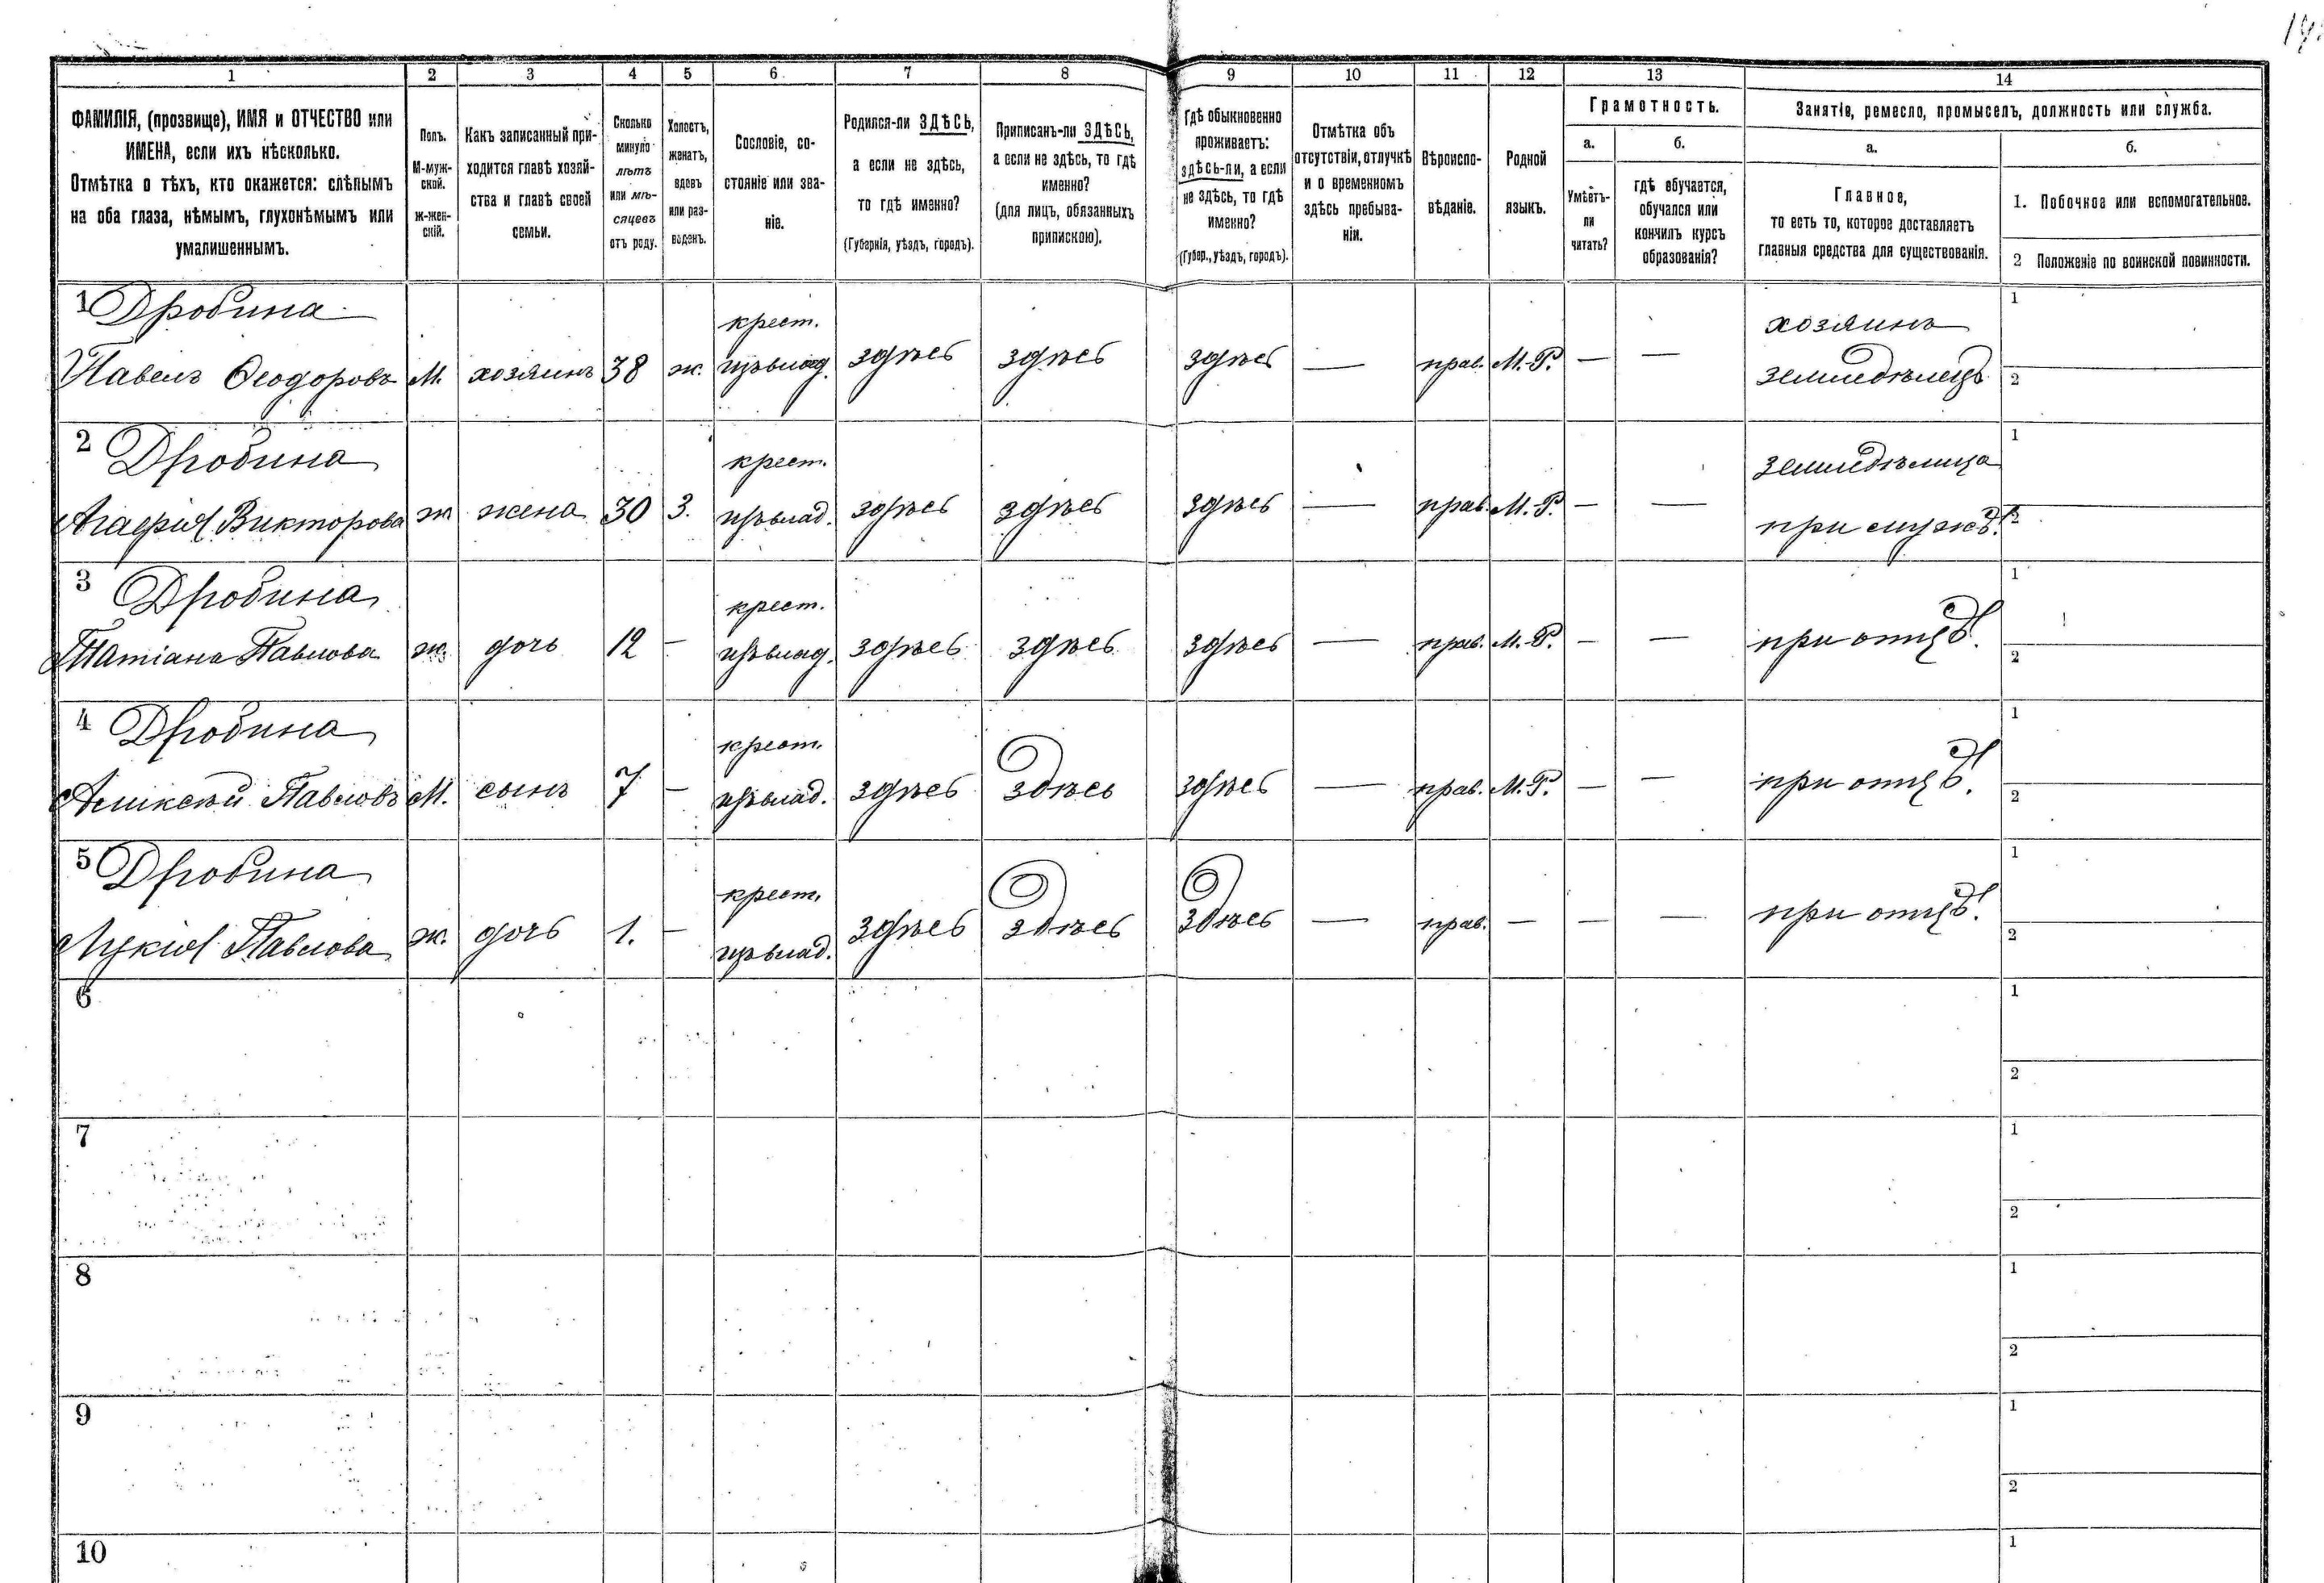 1 2 3 4 5 6 7 8 9 10 11 12 13 14
ФАМИЛІЯ, (прозвище), ИМЯ и ОТЧЕСТВО или
ИМЕНА, если ихъ нѣсколько.
Отмѣтка о тѣхъ, кто окажется: слѣпымъ
на оба глаза, нѣмымъ, глухонѣмымъ или
умалишеннымъ.
Полъ.
М-муж-
ской.
Ж-жен-
скій.
Какъ записанный при-
ходится главѣ хозяй-
ства и главѣ своей
семьи.
Сколько
минуло
лѣтъ
или мѣ-
сяцевъ
отъ роду.
Холостъ,
женатъ,
вдовъ
или раз-
веденъ.
Сословіе, со-
стояніе или зва-
ніе.
Родился-ли ЗДѢСЬ,
а если не здѣсь,
то гдѣ именно?
(Губернія, уѣздъ, городъ).
Приписанъ-ли ЗДѢСЬ,
а если не здѣсь, то гдѣ
именно?
(для лицъ, обязанныхъ
припискою).
Гдѣ обыкновенно
проживаетъ:
здѣсь-ли, а если
не здѣсь, то гдѣ
именно?
(Губер., уѣздъ, городъ).
Отмѣтка объ
отсутствіи, отлучкѣ
и о временномъ
здѣсь пребыва-
ніи.
Вѣроиспо-
вѣданіе.
Родной
языкъ.
Грамотность.
а.
Умѣетъ-
ли
читать?
б.
гдѣ обучается,
обучался или
кончилъ курсъ
образованія?
Занятіе, ремесло, промыселъ, должность или служба.
а.
Главное,
то есть то, которое доставляетъ
главныя средства для существованія.
б.
1. Побочное или вспомогательное.
2 Положеніе по воинской повинности.
1 Дробина крест. хозяинъ 1
Павелъ Ѳеодоровъ М. хозяинъ 38 ж. здѣсь здѣсь здѣсь — прав. М.-Р. — — земледѣлецъ 2
2 Дробина крест. земледѣлица 1
Агафія Викторова ж жена 30 З. здѣсь здѣсь здѣсь — прав. М.-Р. — — при мужѣ. 2
3 Дробина крест. 1
Татіана Павлова ж. дочь 12 — здѣсь здѣсь здѣсь — прав. М.-Р. — — при отцѣ. 2
4 Дробина крест. 1
Алексѣй Павловъ М. сынъ 7 — здѣсь здѣсь здѣсь — прав. М.-Р. — — при отцѣ. 2
5 Дробина крест. 1
Лукія Павлова ж. дочь 1. — здѣсь здѣсь здѣсь — прав. — — — при отцѣ. 2
6 1
2
7 1
2
8 1
2
9 1
2
10 1